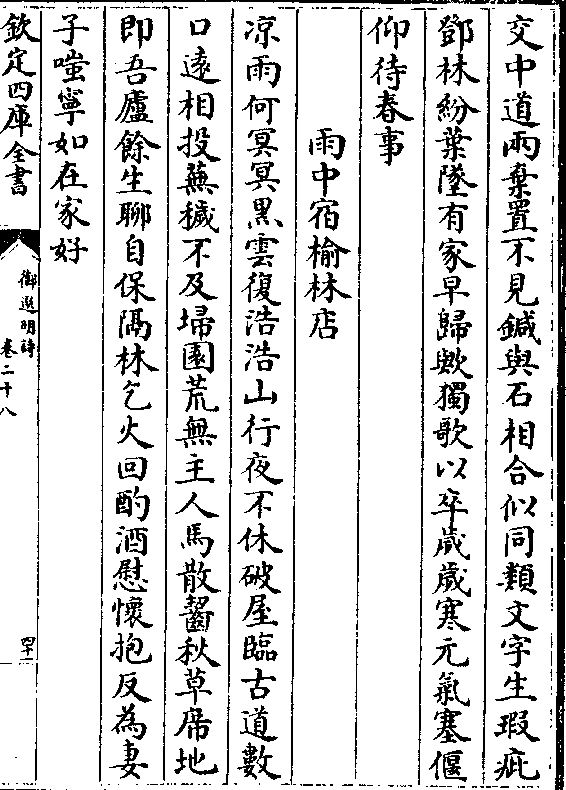 交中道兩棄置不見鍼與石相合似同類文字生瑕疵
鄧林紛葉墜有家早歸歟獨歌以卒歲歲寒元氣塞偃
仰待春事
雨中宿榆林店
凉雨何冥冥黒雲復浩浩山行夜不休破屋臨古道數
口遠相投蕪穢不及埽園荒無主人馬散齧秋草席地
即吾廬餘生聊自保隔林乞火回酌酒慰懷抱反為妻
子嗤寧如在家好
欽定四庫全書
御選明詩
卷二十八
四十一